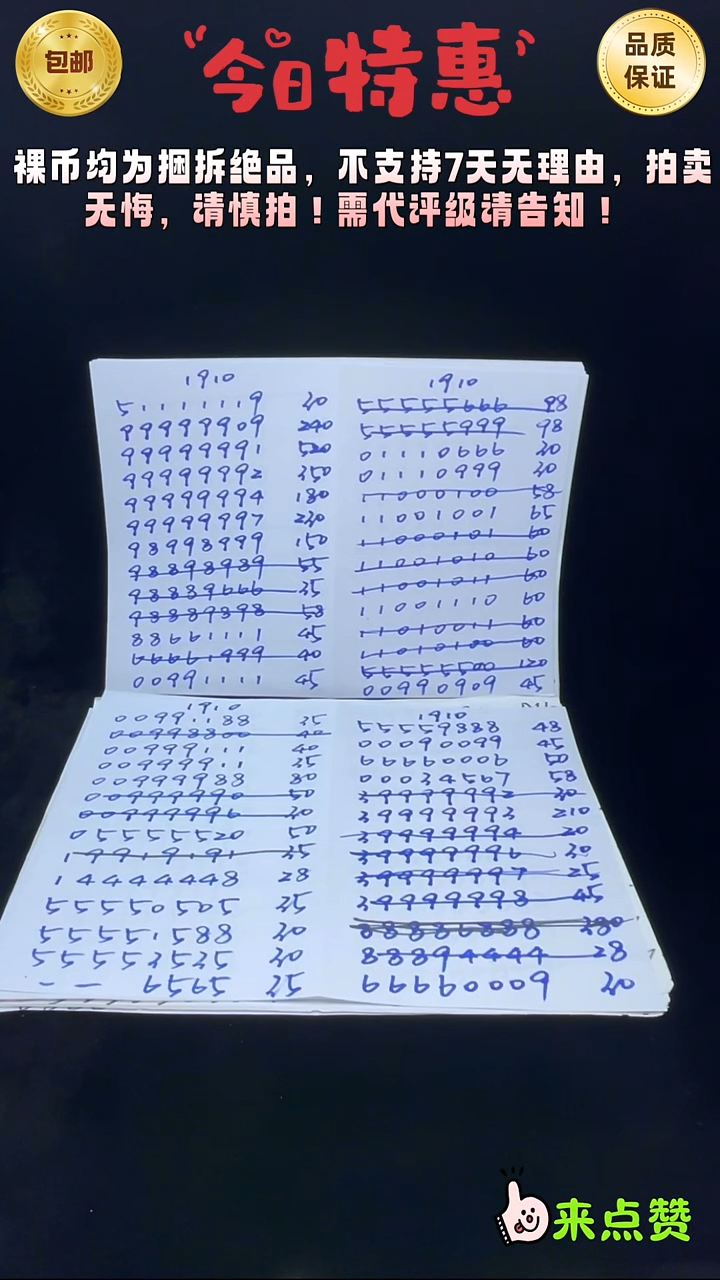 包邮
“今日特惠”
品质
保证
裸币均为捆拆绝品，不支持7天无理由，拍卖
无悔，请慎拍！需代评级请告知！
1910
51111119 30
99999909 240
99999991 520
99999992 350
99999994 180
99999997 230
98998999 150
98898989 55
98889666 35
98889898 58
88661111 45
66661999 40
00991111 45
1910
55555666 98
55555999 98
01110666 30
01110999 30
11000100 58
11001001 65
11000101 60
11001010 60
11001011 60
11001110 60
11010011 60
11010100 60
55555500 120
00990909 45
1910
00991188 35
00998800 40
00999111 40
00999911 35
00999988 80
00999990 50
00999996 30
05555520 50
19919191 35
14444448 28
55550505 35
55551588 30
55553535 30
一 一 5959 35
1910
55559888 48
00090099 45
66660006 50
00034567 58
39999992 30
39999993 210
39999994 20
39999996 30
39999997 25
39999998 45
88886888 380
88894444 28
99990009 30
来点赞